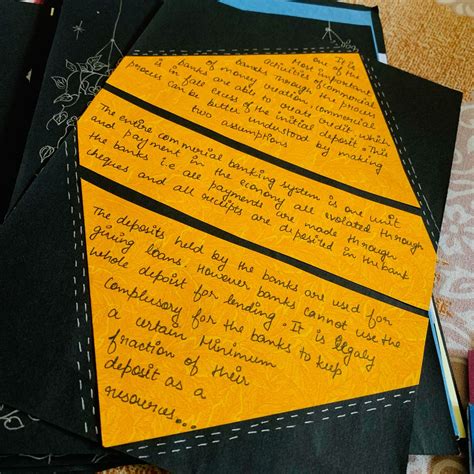 It is
one of the
How important
activities of commercial
banks through the process
of money creation, commercial
banks are able to create credit, which
is in fall excess of the initial deposit. This
process can be better understood by making
two assumptions
The entire commercial banking system is one unit
and payment in the economy all avolated through
the banks i.e all payments are made through
cheques and all receipts are diposited in the bank
The deposits held by the banks are used for
giving loans. However banks cannot use the
whole deposit for lending. It is legaly
complusory for the banks to keep
a certain Minimum
fraction of their
deposit as a
resources...